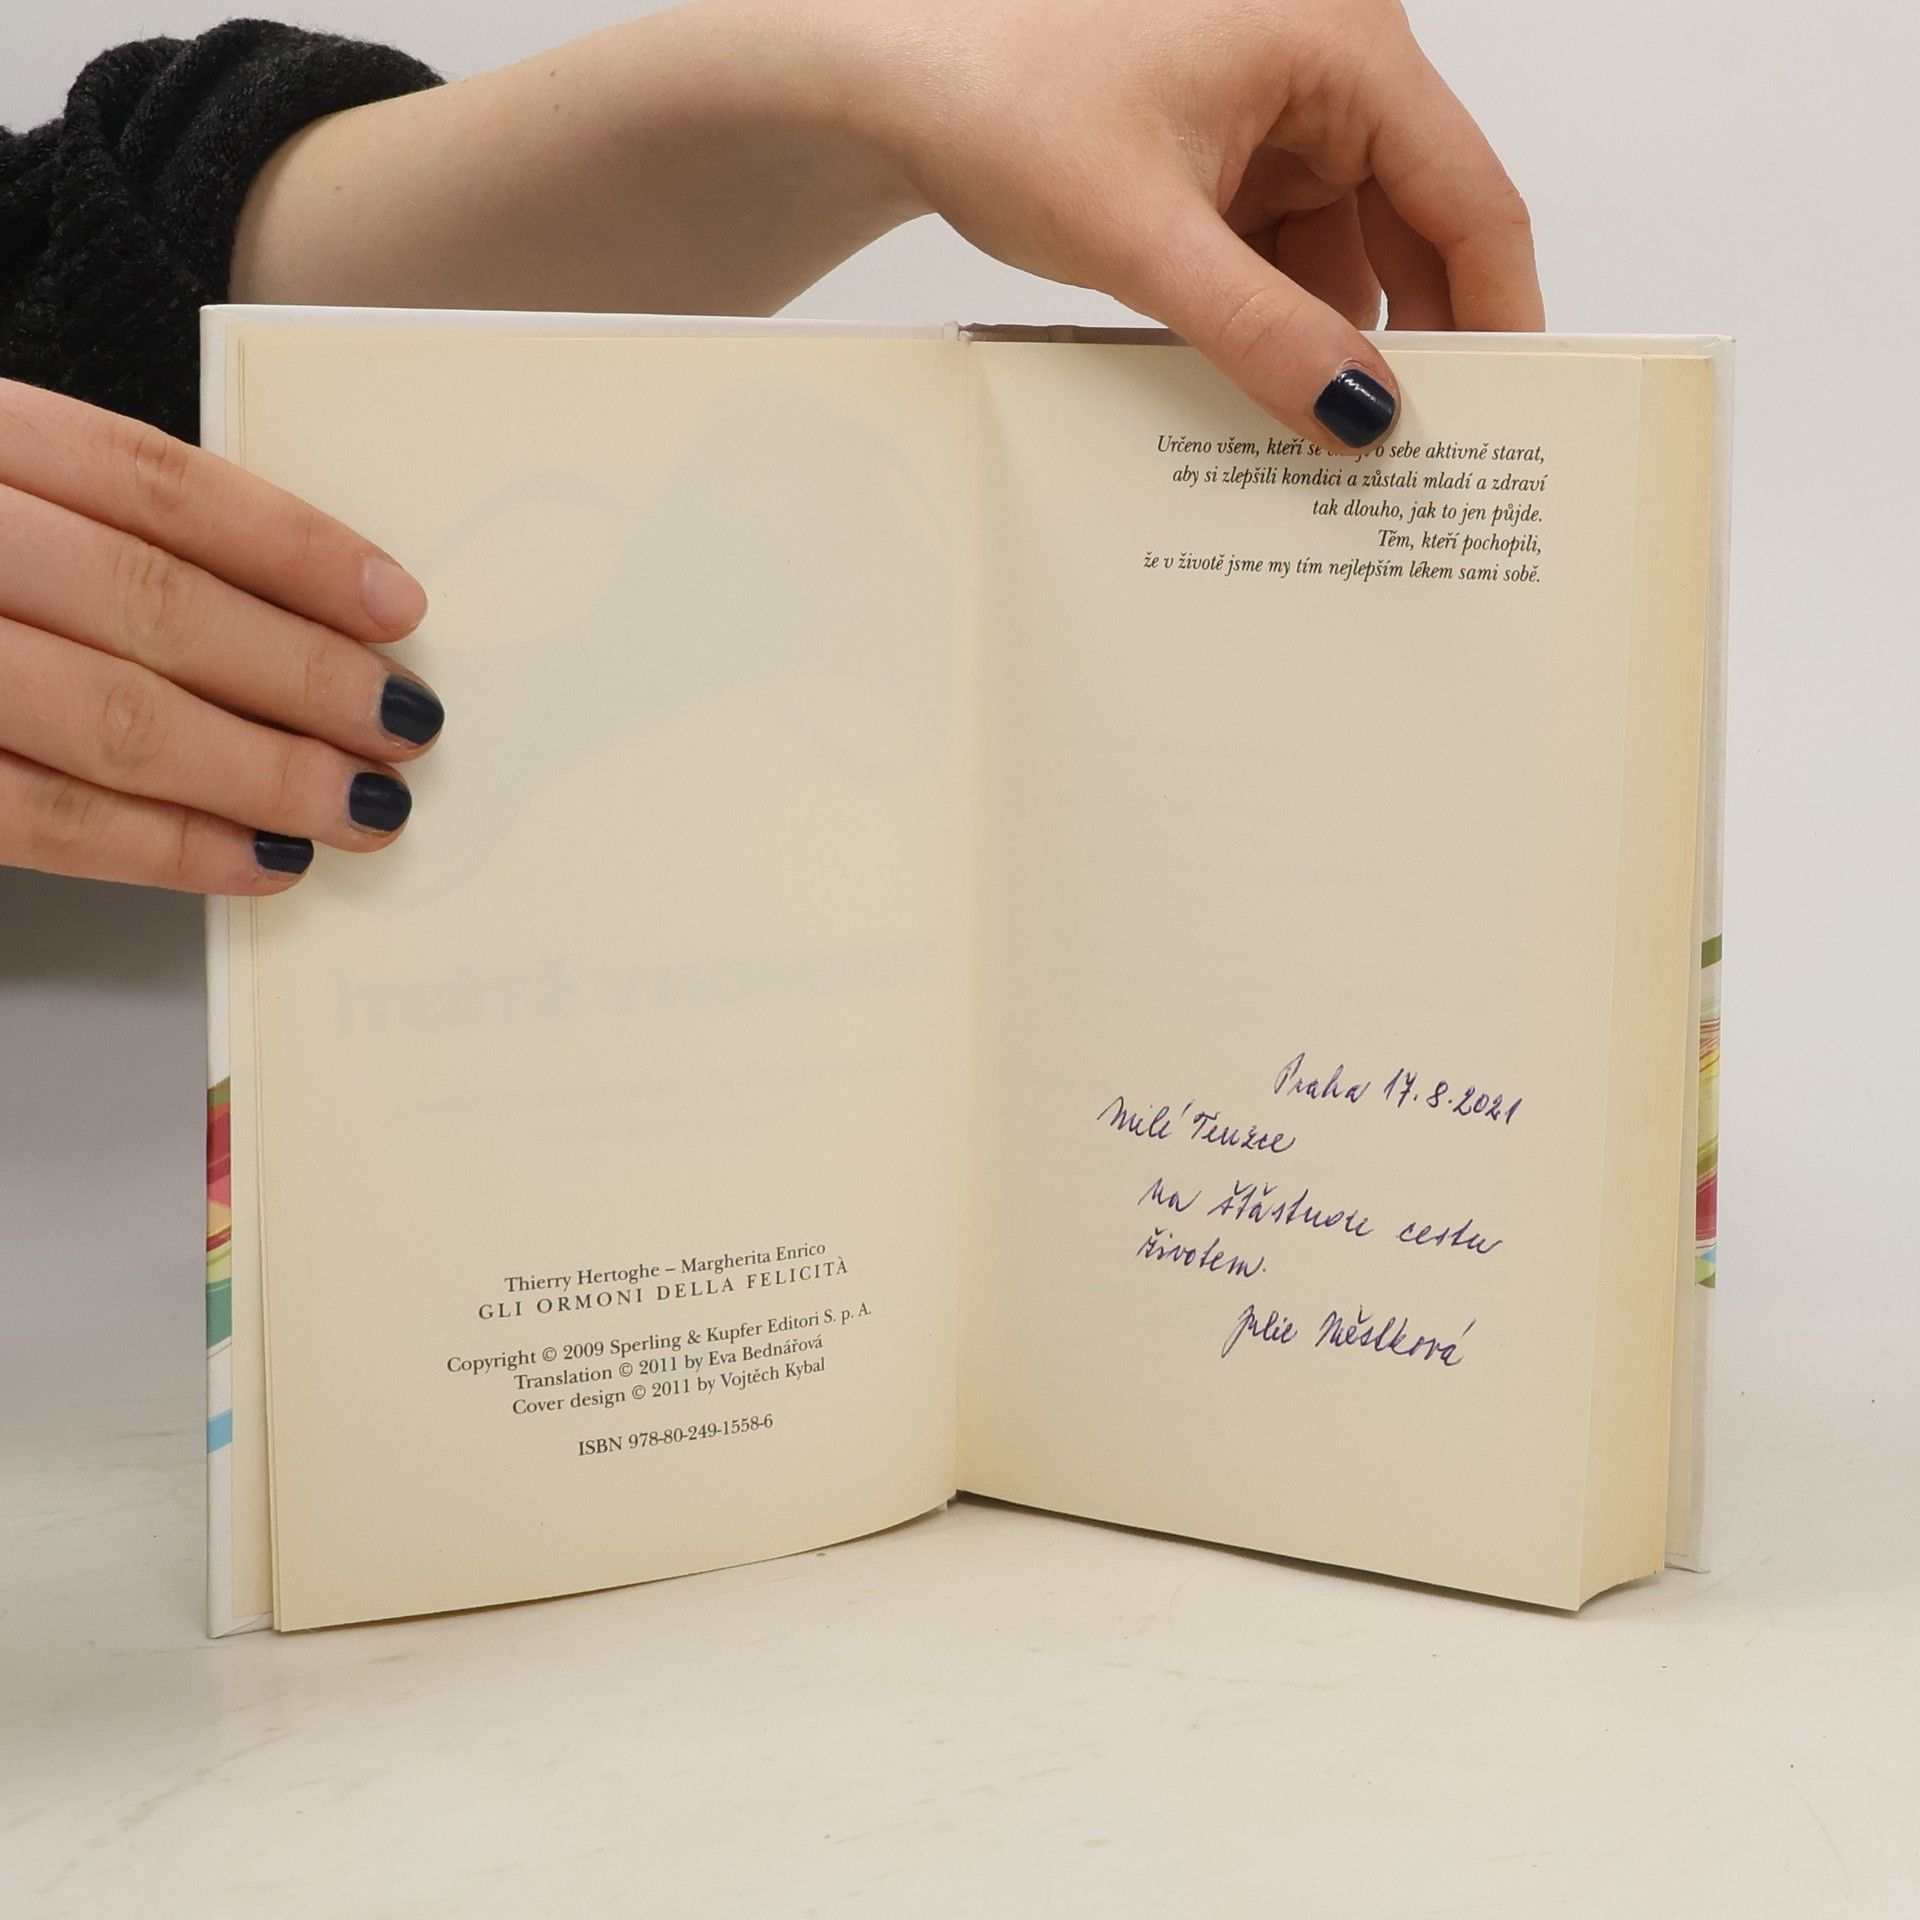 Thierry Hertoghe – Margherita Enrico
GLI ORMONI DELLA FELICITÀ
Copyright © 2009 Sperling & Kupfer Editori S. p. A.
Translation © 2011 by Eva Bednářová
Cover design © 2011 by Vojtěch Kybal
ISBN 978-80-249-1558-6
Určeno všem, kteří se o sebe aktivně starat,
aby si zlepšili kondici a zůstali mladí a zdraví
tak dlouho, jak to jen půjde.
Těm, kteří pochopili,
že v životě jsme my tím nejlepším lékem sami sobě.
Praha 17.8.2021
Milé Terezce
na šťastnou cestu
životem.
Julie Městková